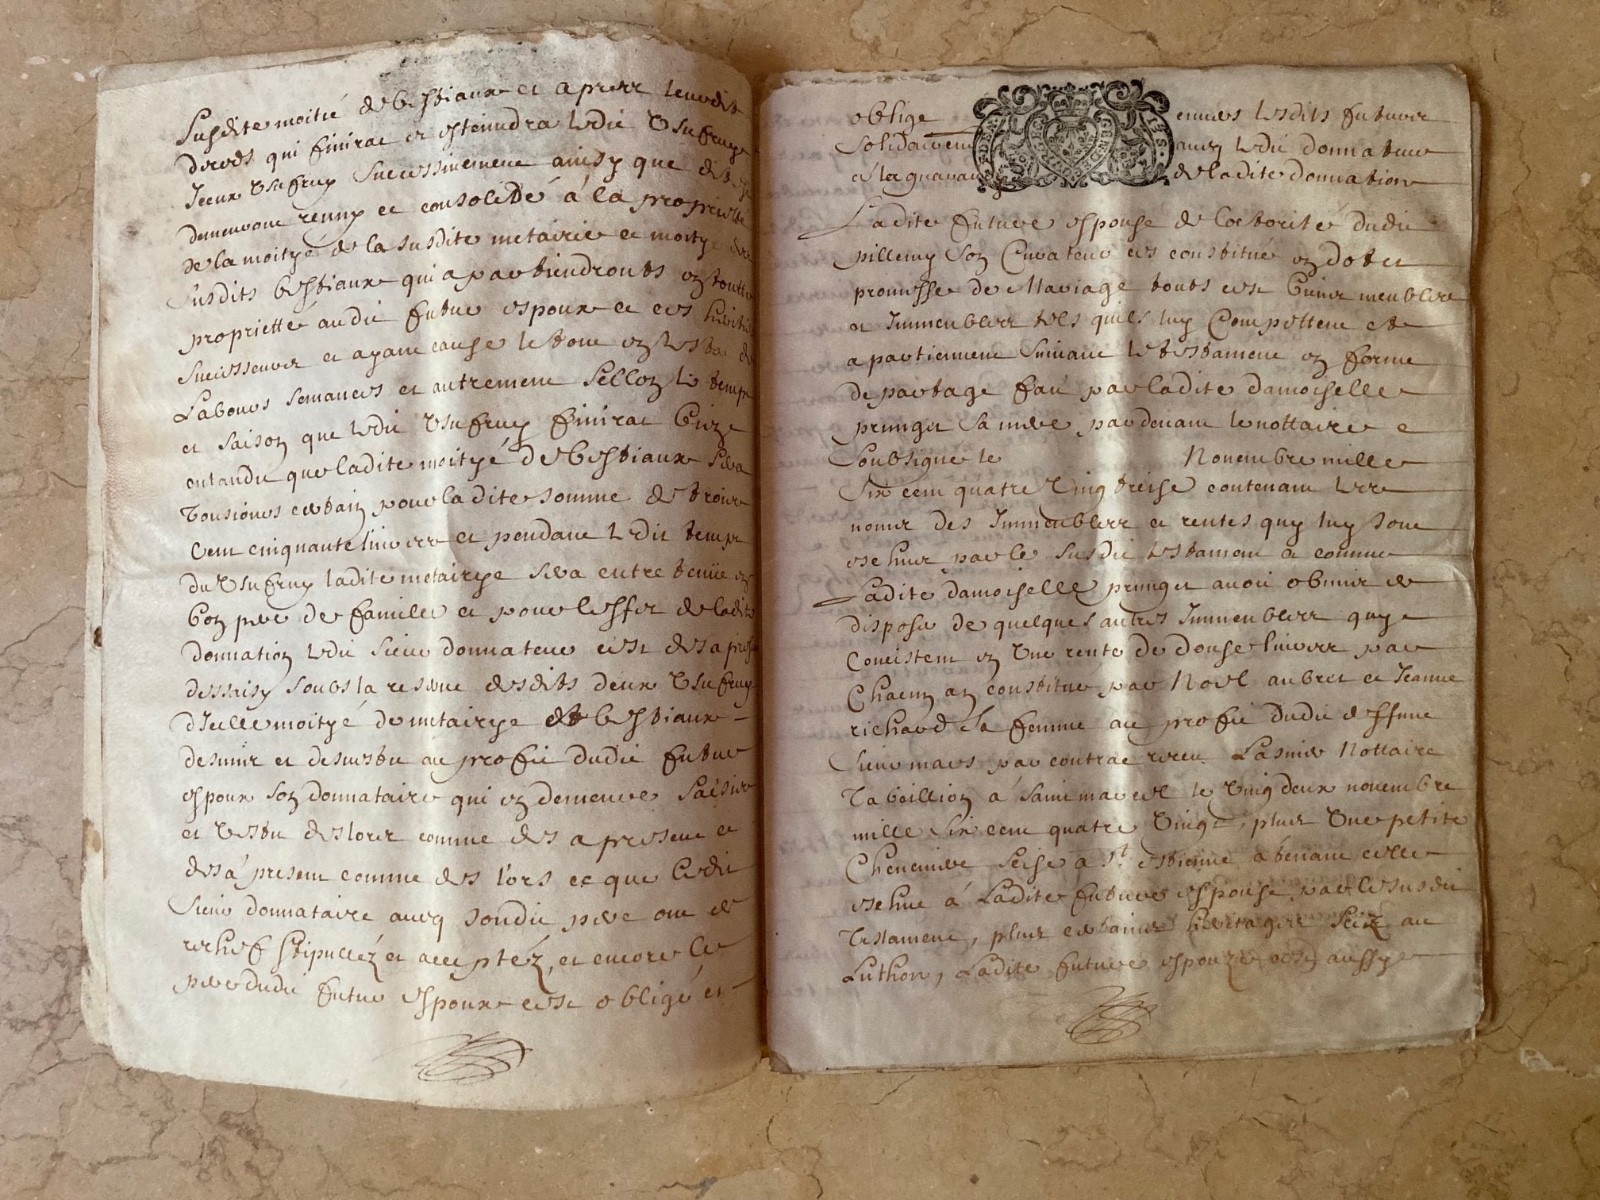 Susdite moitié de bestiaux et apres le susdit
deceds qui finirat et esteindra ledit Usufruy
Iceux Usufruy Successivement ainsy que dit
demeurons reuny et consolidé à la proprietté
de la moityé de la susdite metairie et moityé des
Susdits bestiaux qui apartiendronts en toutte
propriettè audit futur espoux et ces heritie
Successeurs et ayant cause le tout en lesta de
Labours Semances et autrement Sellon le temps
et saison que ledit Usufruy finirat bien
entandu que ladite moityé de bestiaux Sera
tousiours certain pour la dite somme de trois
Cent cinquante livres et pendant ledit temps
du Usufruy ladite metairye sera entretenüe en
bon pere de famille et pour lesfet de ladite
donnation ledit Sieur donnateur cest des apres
dessaisy soubs la reserve desdits deux Usufruy
dIcelle moityé de metairye et bestiaux
desmir et desvestu au proffit dudit futur
espoux son donnataire qui en demeure saisie
et Vestu des lors comme des apresent et
des à present comme des lors ce que ledit
Sieur donnataire avecq sondit pere ont de
rechef stipulléz et acceptéz, et encore le
pere dudit futur espoux cest obligé et
oblige envers lesdits futurs
Solidairem avecq ledit donnateur
de ladite donnation
Ladite future espouse de lauthorité dudit
pillemy son Curateur cest constitué en dot et
promesse de Mariage touts ces biens meubles
et Immeubles tels quils luy Compettent et
apartiennent Suivant le testament en forme
de partage fait par ladite damoiselle
pringet sa mere pardevant le nottaire
Soubsigné le Novembre mille
Six cent quatre Vingt treise contenant les
noms des Immeubles et rentes quy luy sont
escheus par le susdit testament et comme
Ladite damoiselle pringet avoit obmis de
dispose de quelques autres Immeubles quy
Concistent en Une rente de douse livres par
Chacun an constitué par Noel aubret et Jeanne
richard sa femme au proffit dudit deffunt
Sieur mars par contrac receu Lasnier Nottaire
Tabellion à Saint marcel le Vingt deux novembre
mille Six cent quatre Vingt, plus Une petite
Cheneviere seise a St. estienne atenant celle
escheue à Ladite future espouse par le susdit
Testament, plus certains heritages seiz au
Luthon, Ladite future espouze aussy